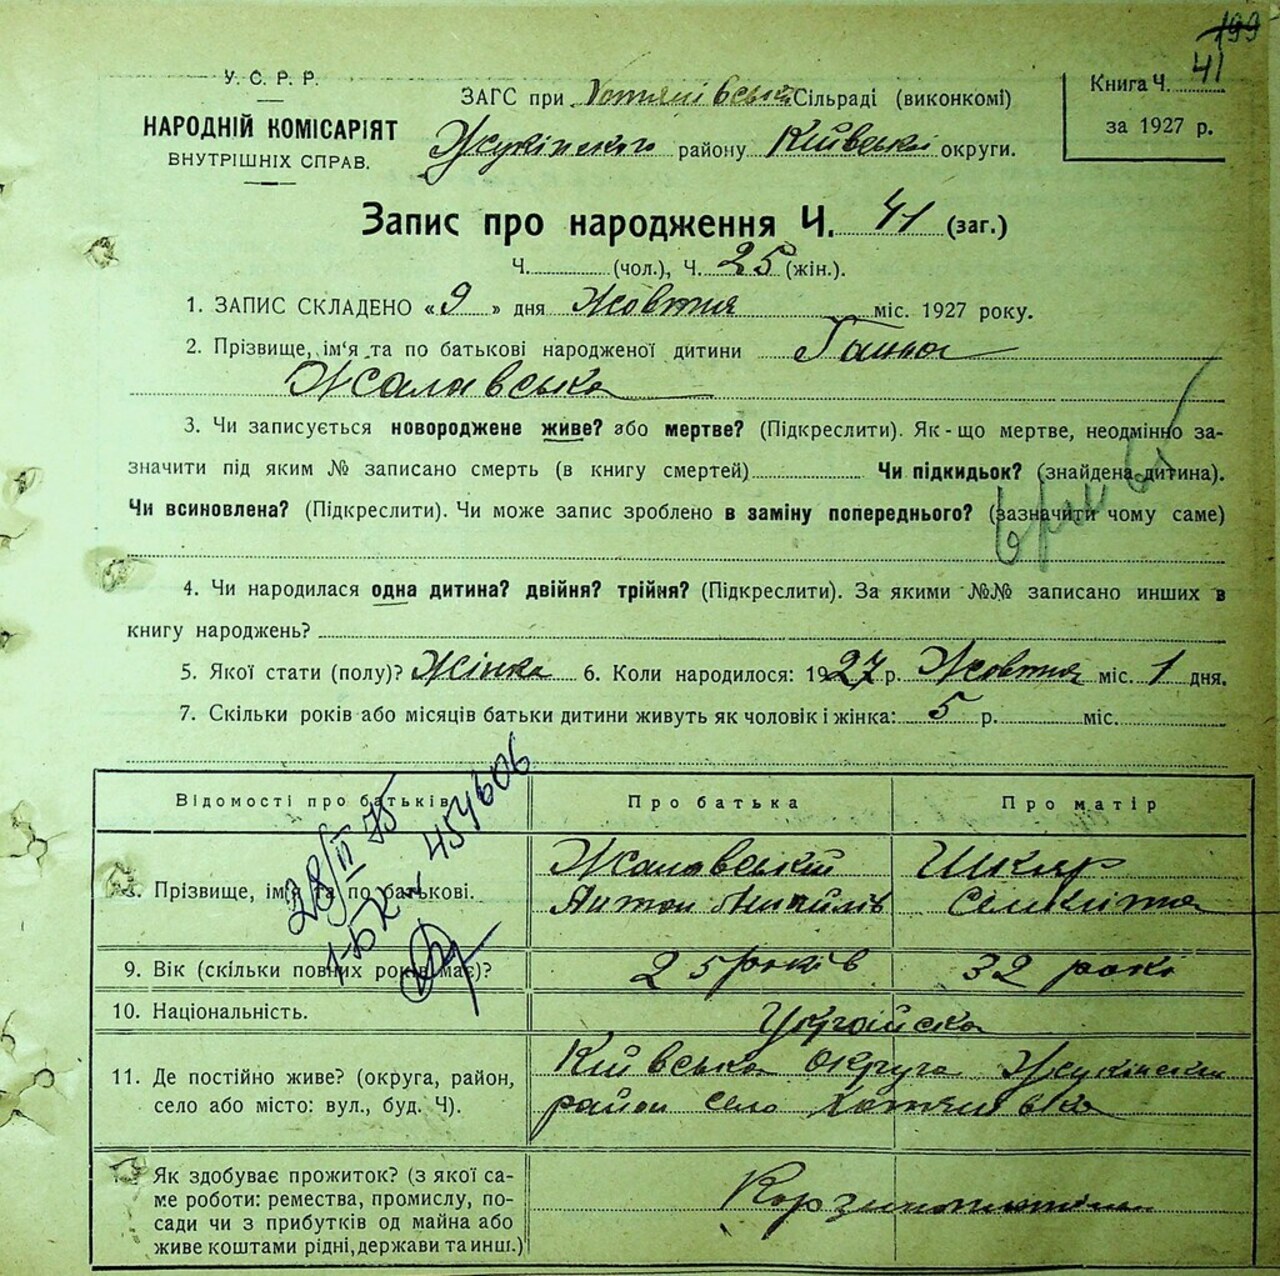 199
41
У. С. Р. Р.
НАРОДНІЙ КОМІСАРІЯТ
ВНУТРІШНІХ СПРАВ.
ЗАГС при Хотянівській Сільраді (виконкомі)
Жукінського району Київської округи.
Книга Ч.
за 1927 р.
Запис про народження Ч. 41 (заг.)
Ч. (чол.), Ч. 25 (жін.).
1. ЗАПИС СКЛАДЕНО «9» дня Жовтня міс. 1927 року.
2. Прізвище, ім'я та по батькові народженої дитини Ганна
Жалавська
3. Чи записується новороджене живе? або мертве? (Підкреслити). Як-що мертве, неодмінно за-
значити під яким № записано смерть (в книгу смертей) Чи підкидьок? (знайдена дитина).
Чи всиновлена? (Підкреслити). Чи може запис зроблено в заміну попереднього? (зазначити чому саме)
4. Чи народилася одна дитина? двійня? трійня? (Підкреслити). За якими №№ записано инших в
книгу народжень?
5. Якої стати (полу)? Жінка 6. Коли народилося: 1927 р. Жовтня міс. 1 дня.
7. Скільки років або місяців батьки дитини живуть як чоловік і жінка: 5 р. міс.
Відомості про батьків Про батька Про матір
28/II 75
454606
8. Прізвище, ім'я та по батькові. Жалавський Шкляр
Антон
9. Вік (скільки повних років має)? 25 років 32 рокі
10. Національність.
11. Де постійно живе? (округа, район, Київська округа Жукінський
село або місто: вул., буд. Ч). район село Хотянівка
Як здобуває прожиток? (з якої са-
ме роботи: ремества, промислу, по-
сади чи з прибутків од майна або
живе коштами рідні, держави та инш.)